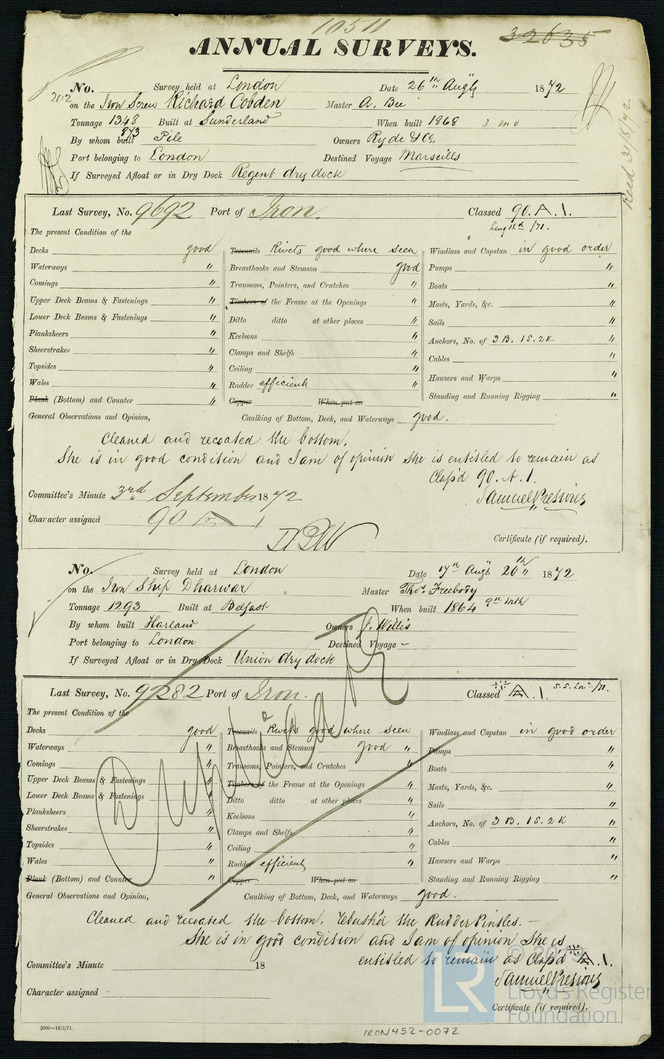 10511
32635
ANNUAL SURVEYS.
No. 202 Survey held at London Date 26th Augt 1872
on the Iron Screw Richard Cobden Master A. Bee
Tonnage 1348 873 Built at Sunderland When built 1868 3 mo
By whom built Pile Owners Ryde & Co.
Port belonging to London Destined Voyage Marseills
If Surveyed Afloat or in Dry Dock Regent dry dock
Recd 31/8/72.
Last Survey, No. 9692 Port of Iron. Classed 90. A. 1.
The present Condition of the
Decks good Treenails Rivets good where seen Windlass and Capstan in good order
Waterways " Breasthooks and Stemson good Pumps "
Comings " Transoms, Pointers, and Crutches " Boats "
Upper Deck Beams & Fastenings " Timbers of the Frame at the Openings " Masts, Yards, &c. "
Lower Deck Beams & Fastenings " Ditto ditto at other places " Sails "
Planksheers " Keelsons " Anchors, No. of 3 B. 1S. 2K "
Sheerstrakes " Clamps and Shelfs " Cables "
Topsides " Ceiling " Hawsers and Warps "
Wales " Rudder efficient " Standing and Running Rigging "
Plank (Bottom) and Counter " Copper When put on
General Observations and Opinion, Caulking of Bottom, Deck, and Waterways good.
Cleaned and recoated the bottom.
She is in good condition and I am of opinion she is entitled to remain as
Class'd 90. A. 1.
Committee's Minute 3rd September 1872
Character assigned 90 A 1
Certificate (if required).
No. Survey held at London Date 17th Augt 20th " 1872
on the Iron Ship Dharwar Master Thos. Freebody
Tonnage 1293 Built at Belfast When built 1864 9th Mth
By whom built Harland Owners J. Willis
Port belonging to London Destined Voyage -
If Surveyed Afloat or in Dry Dock Union dry dock
Duplicate
Last Survey, No. 9282 Port of Iron. Classed A. 1.
The present Condition of the
Decks good Treenails Rivets good where seen Windlass and Capstan in good order
Waterways " Breasthooks and Stemson good " Pumps "
Comings " Transoms, Pointers, and Crutches " Boats "
Upper Deck Beams & Fastenings " Timbers of the Frame at the Openings " Masts, Yards, &c. "
Lower Deck Beams & Fastenings " Ditto ditto at other places " Sails "
Planksheers " Keelsons " Anchors, No. of 3 B. 1S. 2K "
Sheerstrakes " Clamps and Shelfs " Cables "
Topsides " Ceiling " Hawsers and Warps "
Wales " Rudder efficient " Standing and Running Rigging "
Plank (Bottom) and Counter " Copper When put on
General Observations and Opinion, Caulking of Bottom, Deck, and Waterways good.
Cleaned and recoated the bottom. rebush'd the Rudder Pintles. -
She is in good condition and I am of opinion She is
entitled to remain as Class'd A. 1.
Committee's Minute 18
Character assigned
Certificate (if required).
2000-13/2/71.
IRON452-0072
LR
Lloyd's Register
Foundation